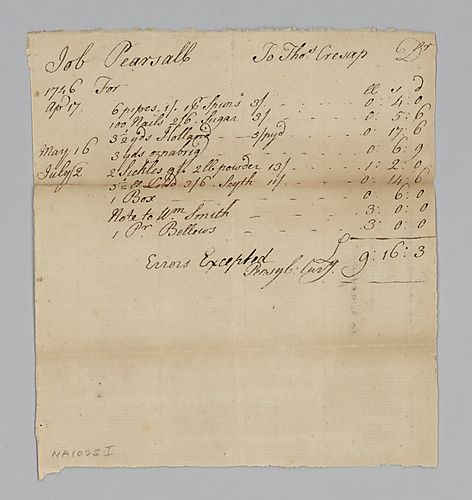 Job Pearsall To Thos Cresap Dr
1746 For ll s d
Apl 17. 6 pipes 1/. 1 pr Spurs 3/ - - - - 0: 4: 0
100 Nails 2/6 Sugar 3/ - - - - 0: 5: 6
3 1/2 yds Holland - - 5/pyd - - - 0: 17: 6
May 16 3 yds oznabrig - - - - 0: 6: 9
July 12 2 Sickles 9/. 2 ll powder 13/ - - - 1: 2: 0
3 1/2 ll Lead 3/6 Scyth 11/ - - - 0: 14: 6
1 Box - - - - 0: 6: 0
Note to Wm Smith - - - 3: 0: 0
1 Pr Bellows - - - - 3: 0: 0
Errors Excepted £ 9: 16: 3
Pensylv: Curry.
NA1025I